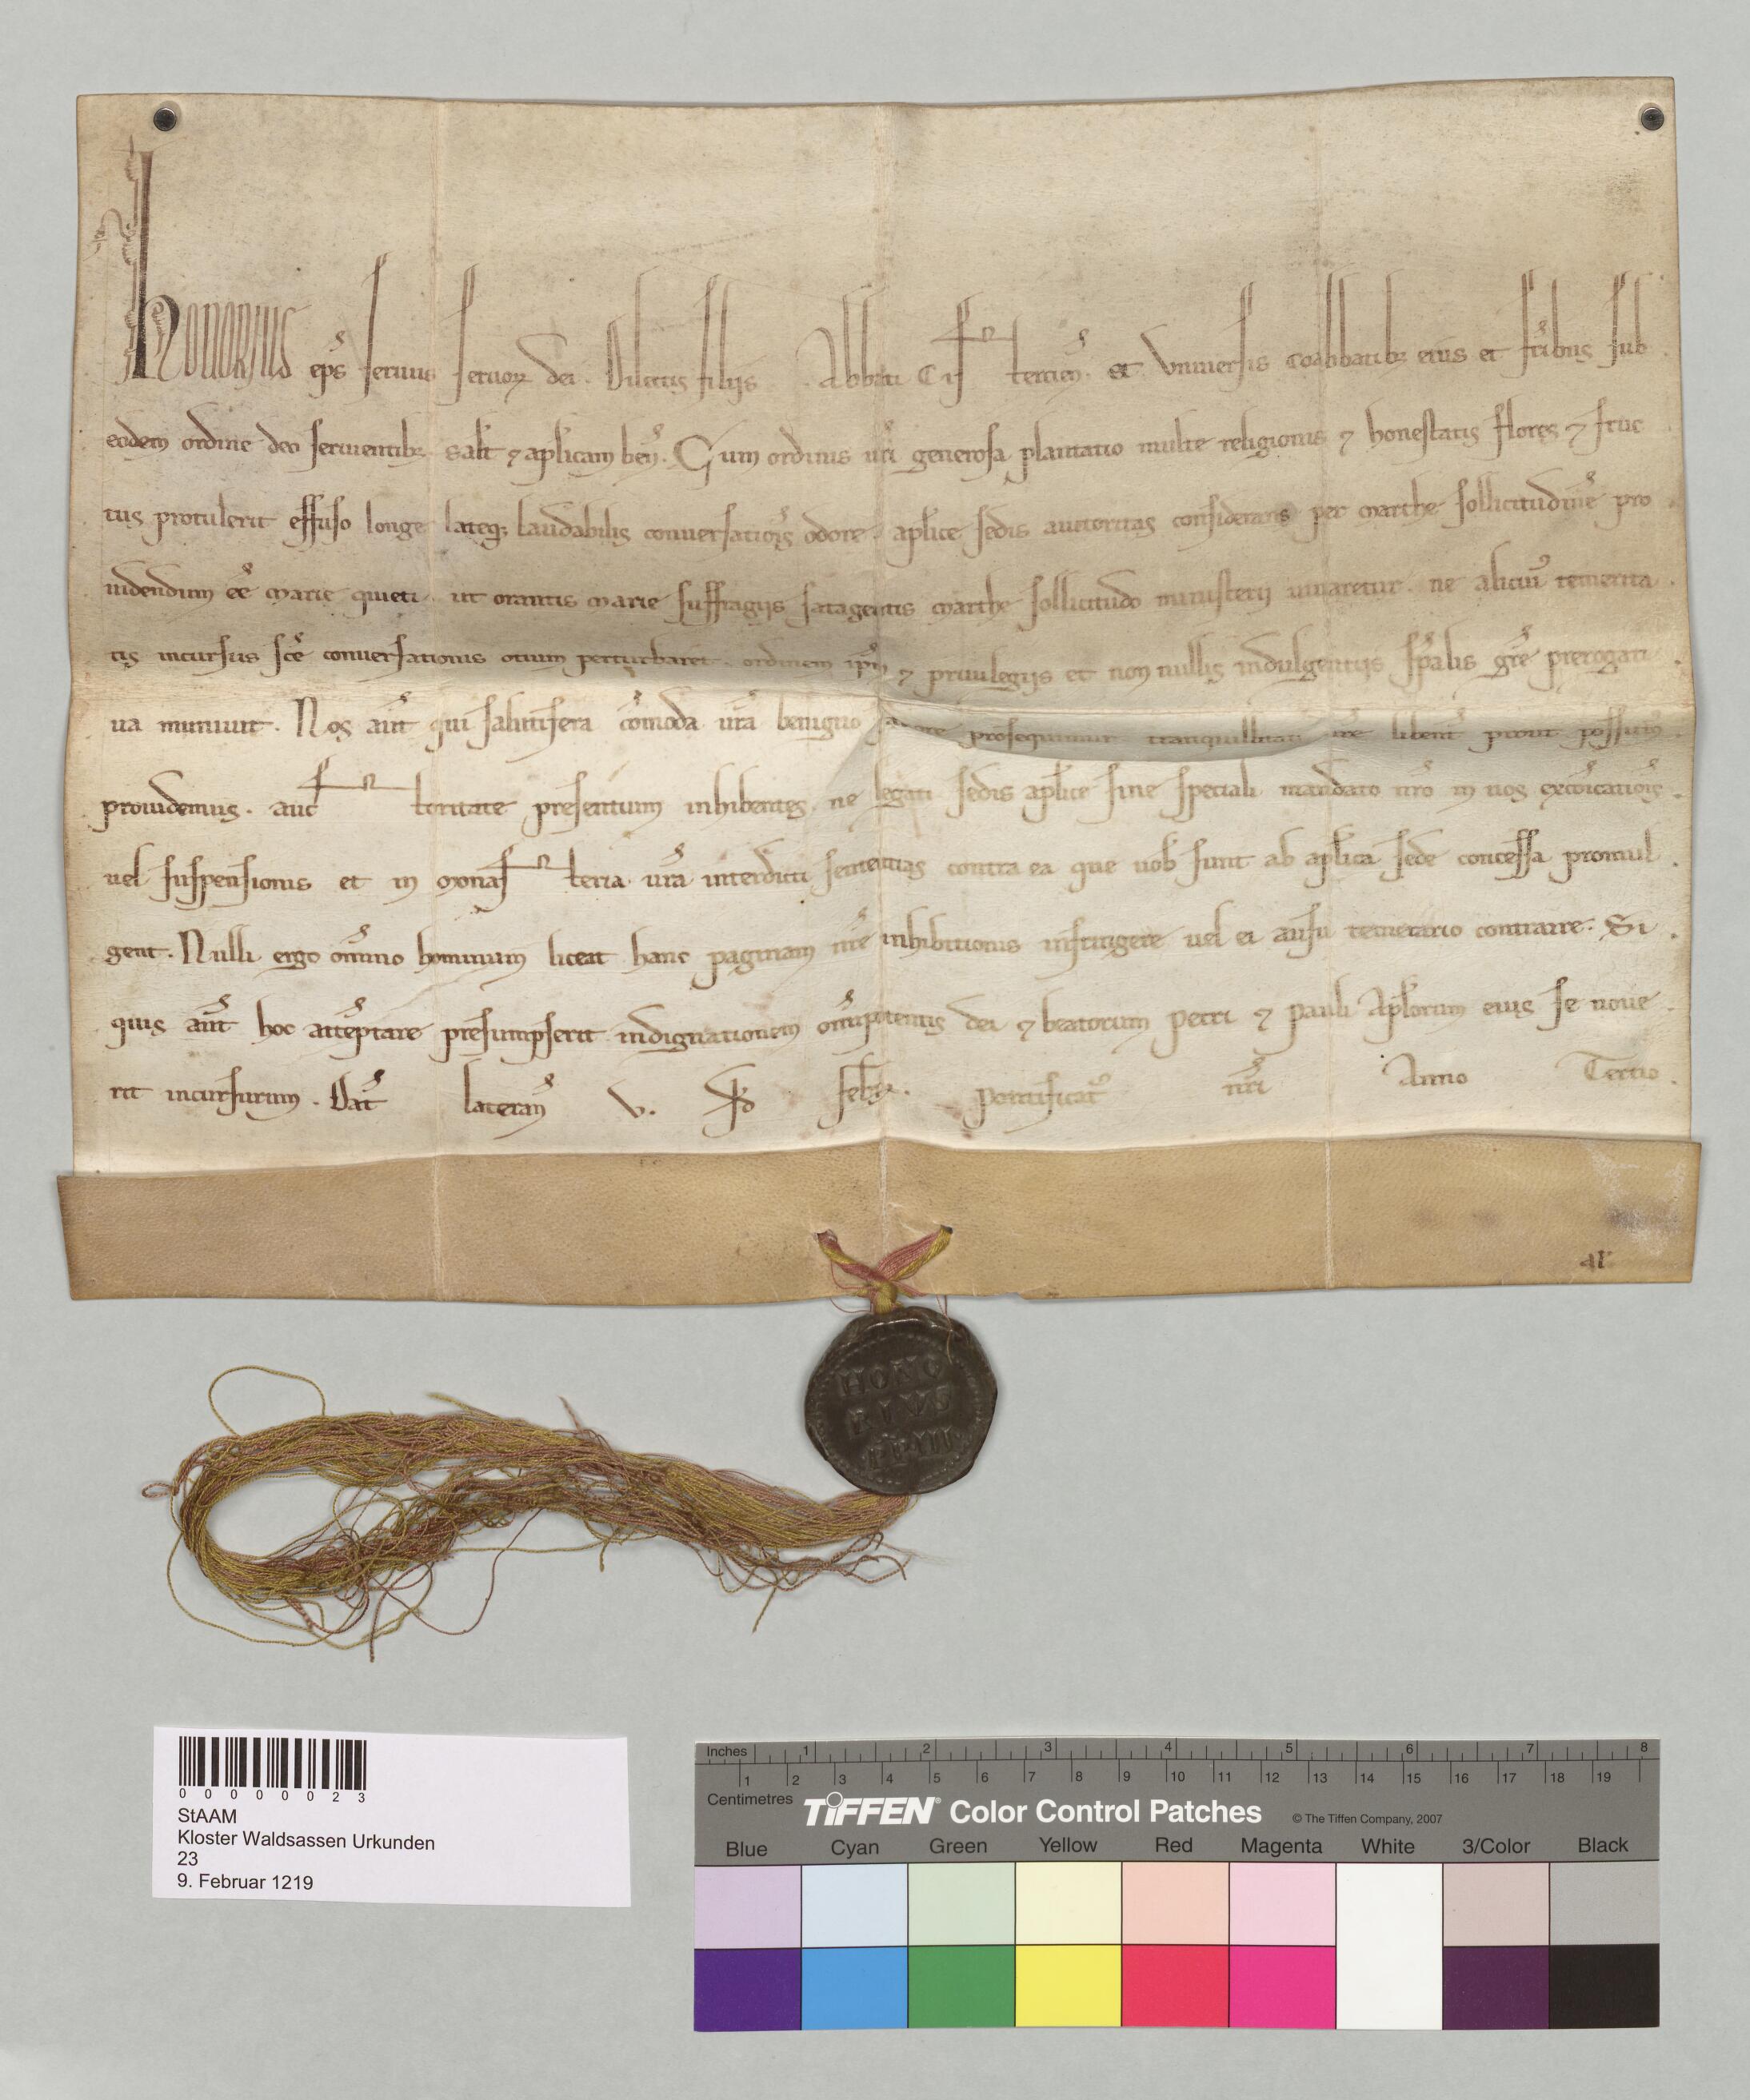 HONORIUS ep̅s seruus seruoꝝ dei. Dilectis filiis .. Abbati Cistercien̅. et Vniuersis coabbatib; eius et fr̅ibus sub
eodem ordine deo seruientib; salt̅ ⁊ aplicam ben̅. Cum ordinis ur̅i generosa plantatio multe religionis ⁊ honestatis flores ⁊ fruc
tus protulerit effuso longe lateq; laudabilis conuersatio̅is odore. aplice sedis auctoritas considerans per marthe sollicitudine̅ pro
uidendum e̅e̅ marie quieti. ut orantis marie suffragiis satagentis marthe sollicitudo ministerii iuuaretur. ne alicui᷒ temerita
tis incursus sc̅e conuersationis otium perturbaret. ordinem ip̅m ⁊ priuilegiis et non nullis indulgentiis sp̅alis gr̅e prerogati
ua muniuit. Nos aut̅ qui salutifera co̅moda ur̅a benigno fauore prosequimur tranquillitati ur̅e libent̅ prout possum᷒
prouidemus. auctoritate presentium inhibentes. ne legati sedis aplice sine speciali mandato nr̅o in uos exco̅icatio̅is
uel suspensionis et in monasteria ur̅a interdicti sententias contra ea que uob̅ sunt ab aplica sede concessa promul
gent. Nulli ergo om̅ino hominum liceat hanc paginam nr̅e inhibitionis infringere uel ei ausu temerario contraire. Si
quis aut̅ hoc atte̅ptare presumpserit indignationem om̅ipotentis dei ⁊ beatorum petri ⁊ pauli Aplorum eius se noue
rit incursurum. Dat̅ lateran̅ v. Id̅ febr̅. pontificat᷒ nr̅i Anno Tertio.
HONO
RIVS
PP III
0 0 0 0 0 0 2 3
StAAM
Kloster Waldsassen Urkunden
23
9. Februar 1219
Inches 1 2 3 4 5 6 7 8
1 2 3 4 5 6 7 8 9 10 11 12 13 14 15 16 17 18 19
Centimetres
TIFFEN® Color Control Patches © The Tiffen Company, 2007
Blue Cyan Green Yellow Red Magenta White 3/Color Black